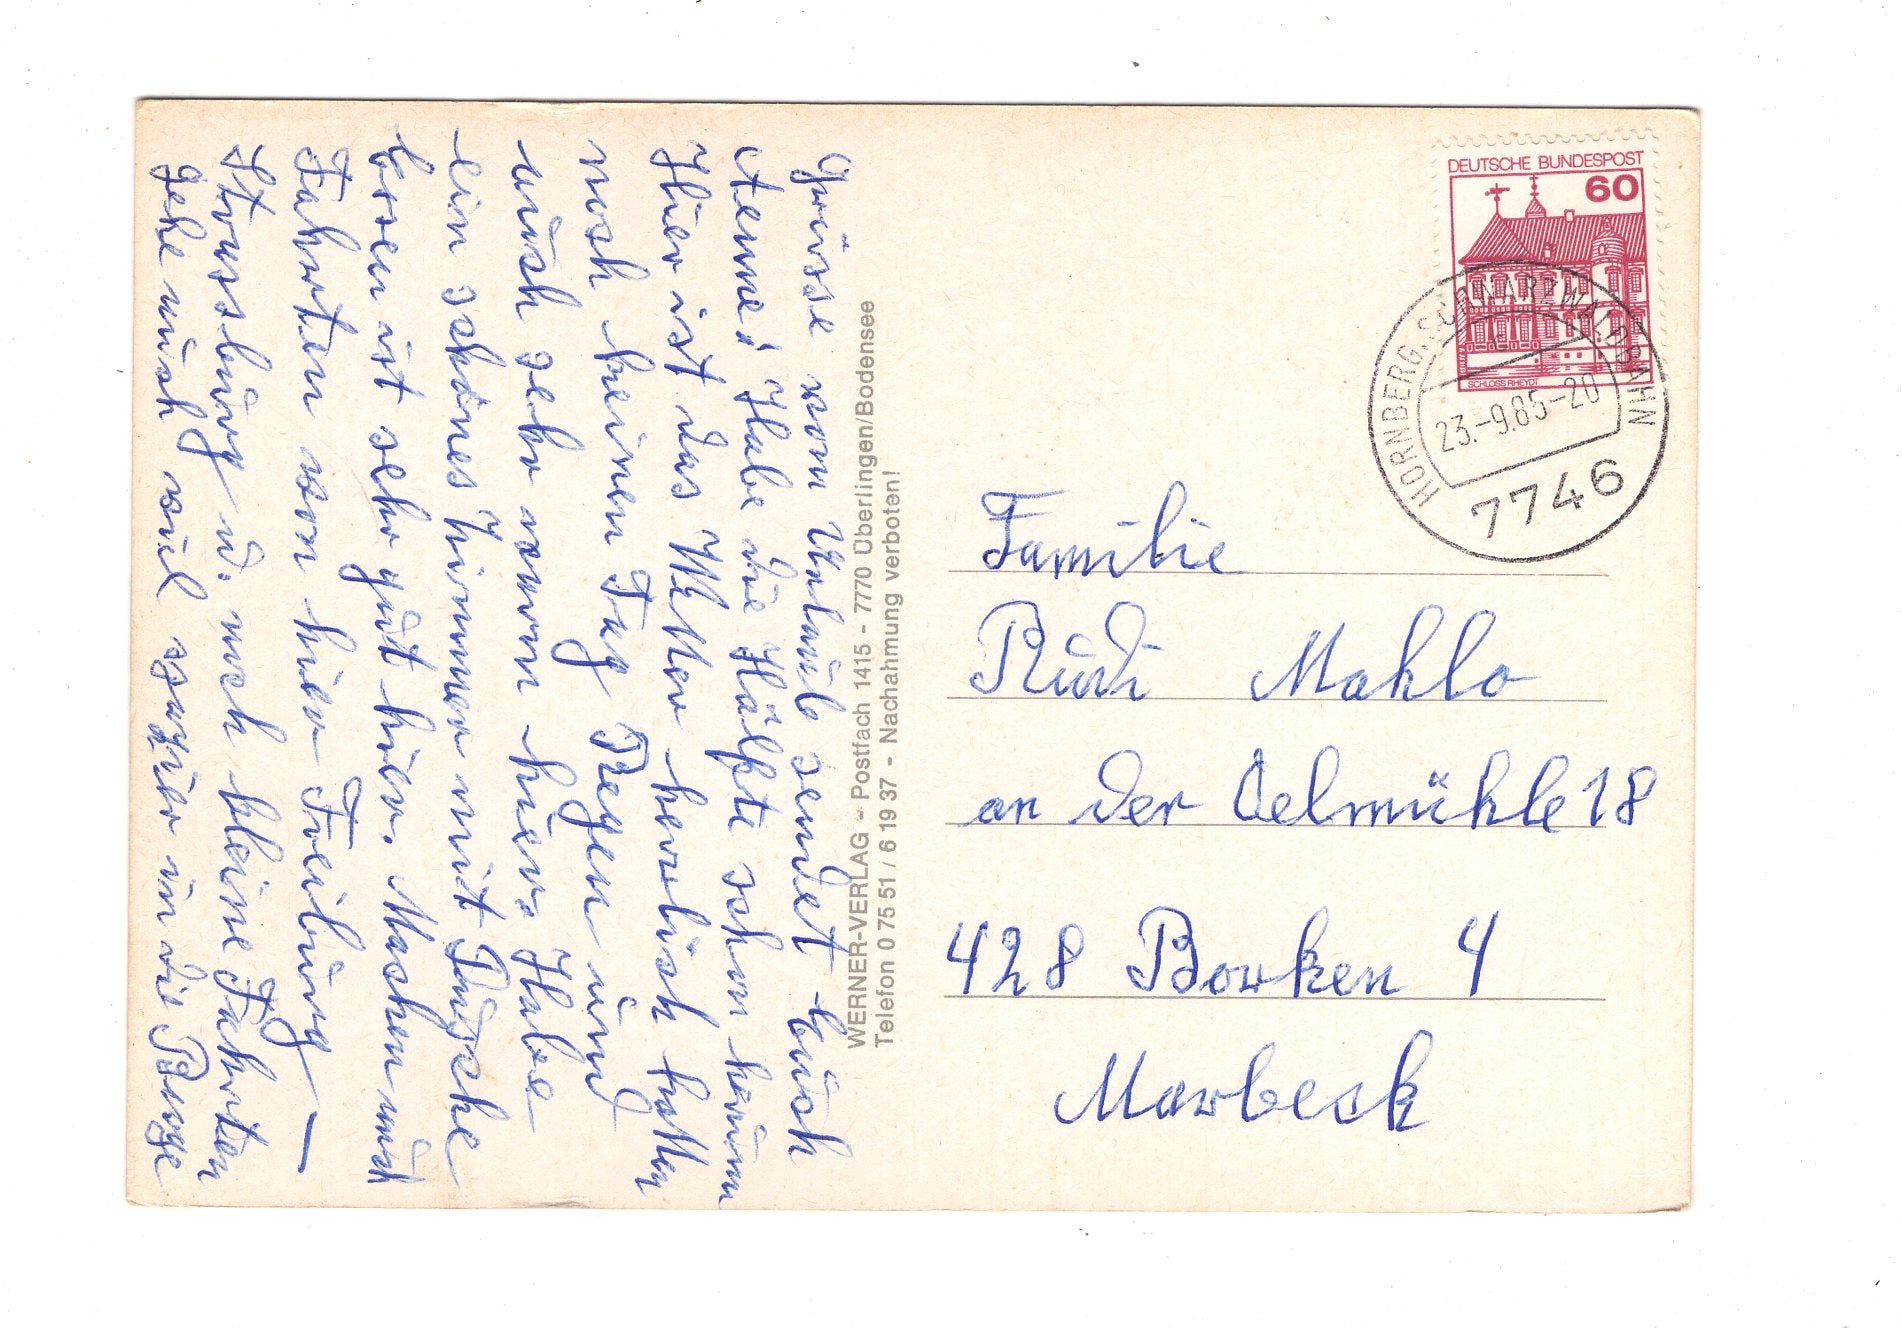 Grüsse vom Urlaub sendet Euch
Änne! Habe die Hälfte schon herum
Hier ist das Wetter herrlich hatten
noch keinen Tag Regen und
auch sehr warm hier. Habe
ein schönes Zimmer mit Dusche
Essen ist sehr gut hier. Machen auch
Fahrten von hier Freiburg –
Strassburg u. noch kleine Fahrten
gehe auch viel spazier in die Berge
WERNER-VERLAG - Postfach 1415 - 7770 Überlingen/Bodensee
Telefon 0 75 51 / 6 19 37 - Nachahmung verboten!
DEUTSCHE BUNDESPOST
60
SCHLOSS RHEYDT
HORNBERG, SCHWARZWALDBAHN
a
23.-9.85-20
7746
Familie
Rudi Mahlo
an der Oelmühle 18
428 Borken 4
Marbeck